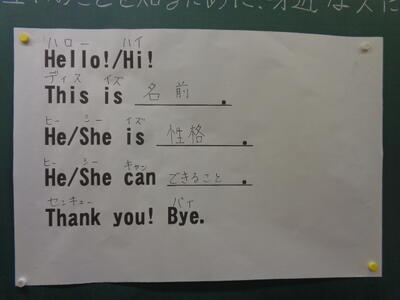 のことを知るために、身近な人に
ハロー ハイ
Hello!/Hi!
ディス イズ
This is 名前.
ヒー シー イズ
He/She is 性格.
ヒー シー キャン
He/She can できること.
センキュー バイ
Thank you! Bye.